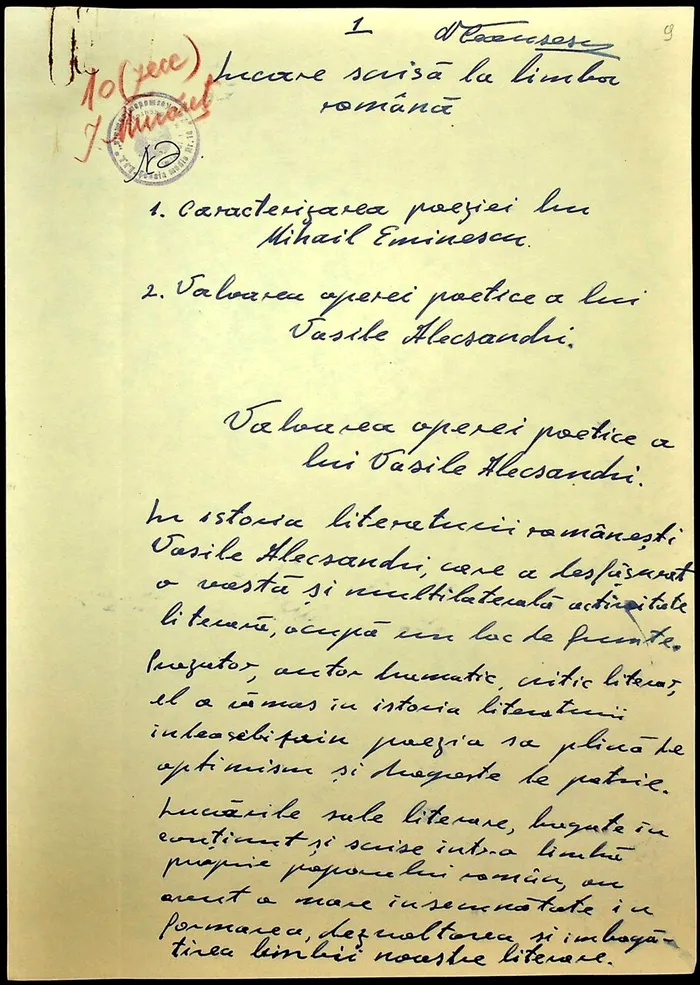 1
9
10 (zece)
Lucrare scrisă la limba
română
1. Caracterizarea poeziei lui
Mihail Eminescu.
2. Valoarea operei poetice a lui
Vasile Alecsandri.
Valoarea operei poetice a
lui Vasile Alecsandri.
In istoria literaturii românești
Vasile Alecsandri, care a desfășurat
o vastă și multilaterală activitate
literară, ocupă un loc de frunte.
Prozator, autor dramatic, critic literar,
el a rămas in istoria literaturii
indeosebi prin poezia sa plină de
optimism și dragoste de patrie.
Lucrările sale literare, bogate in
conținut și scrise intr-o limbă
proprie poporului român, au
avut o mare insemnătate in
formarea, dezvoltarea și imbogă-
țirea limbii noastre literare.